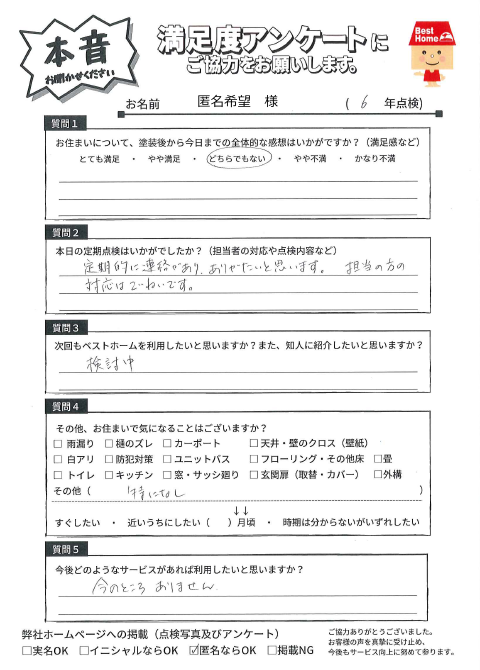 本音
お聞かせください
満足度アンケートに
ご協力をお願いします。
Best
Home
お名前 匿名希望 様 ( 6 年点検)
質問1
お住まいについて、塗装後から今日までの全体的な感想はいかがですか?(満足感など)
とても満足 ・ やや満足 ・ どちらでもない ・ やや不満 ・ かなり不満
質問2
本日の定期点検はいかがでしたか?(担当者の対応や点検内容など)
定期的に連絡があり、ありがたいと思います。 担当の方の
対応はていねいです。
質問3
次回もベストホームを利用したいと思いますか?また、知人に紹介したいと思いますか?
検討中
質問4
その他、お住まいで気になることはございますか?
□ 雨漏り □ 樋のズレ □ カーポート □ 天井・壁のクロス(壁紙)
□ 白アリ □ 防犯対策 □ ユニットバス □ フローリング・その他床 □畳
□ トイレ □ キッチン □ 窓・サッシ廻り □ 玄関扉(取替・カバー) □外構
その他( 特になし )
↓↓
すぐしたい ・ 近いうちにしたい( )月頃 ・ 時期は分からないがいずれしたい
質問5
今後どのようなサービスがあれば利用したいと思いますか?
今のところ ありません
弊社ホームページへの掲載(点検写真及びアンケート)
□実名OK □イニシャルならOK ☑匿名ならOK □掲載NG
ご協力ありがとうございました。
お客様の声を真摯に受け止め、
今後もサービス向上に努めて参ります。